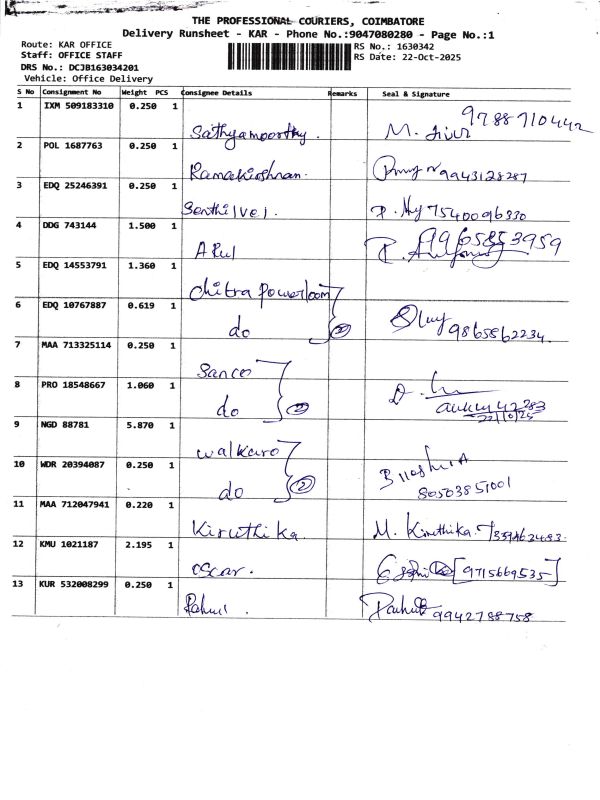 THE PROFESSIONAL COURIERS, COIMBATORE
Delivery Runsheet - KAR - Phone No.:9047080280 - Page No.:1
Route: KAR OFFICE
Staff: OFFICE STAFF
DRS No.: DCJB163034201
Vehicle: Office Delivery
RS No.: 1630342
RS Date: 22-Oct-2025
S No Consignment No Weight PCS Consignee Details Remarks Seal & Signature
1 IXM 509183310 0.250 1 Sathyamoorthy. M. 9788710442
2 POL 1687763 0.250 1 Ramakrishnan. 9943128287
3 EDQ 25246391 0.250 1 Senthilvel. 7540096330
4 DDG 743144 1.500 1 Arul 9965853959
5 EDQ 14553791 1.360 1 Chitra Powerloom
6 EDQ 10767887 0.619 1 do 2 9865862234
7 MAA 713325114 0.250 1 Sanco
8 PRO 18548667 1.060 1 do 2 22/10/25
9 NGD 88781 5.870 1 Walkaro
10 WDR 20394087 0.250 1 do 2 80503851001
11 MAA 712047941 0.220 1 Kiruthika. M. Kiruthika.
12 KMU 1021187 2.195 1 Oscar. [9715669535]
13 KUR 532008299 0.250 1 Rahul. 9942788758